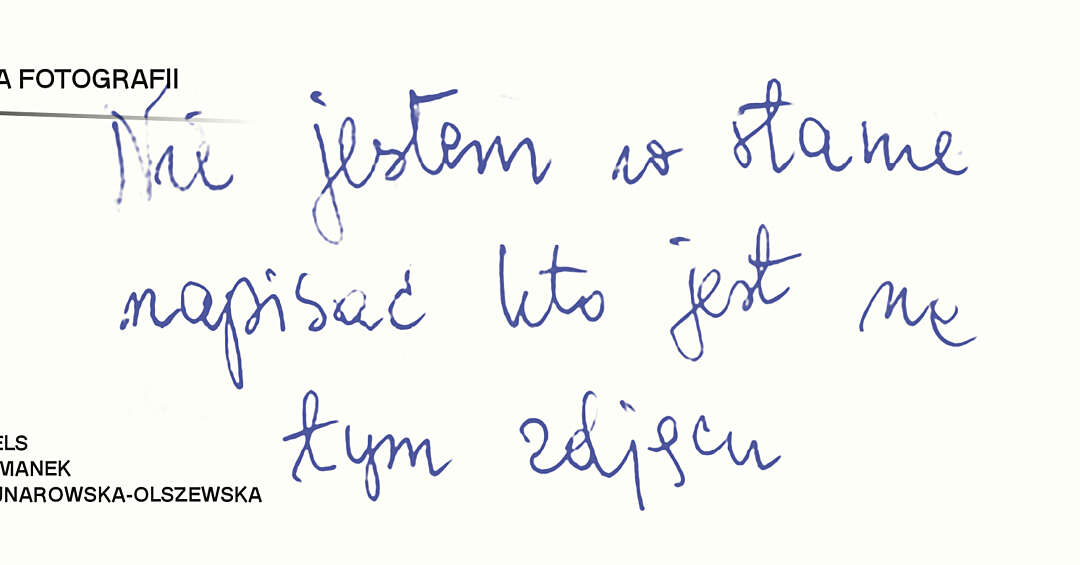 A FOTOGRAFII
Nie jestem w stanie
napisać kto jest na
tym zdjęciu
ELS
MANEK
JNAROWSKA-OLSZEWSKA